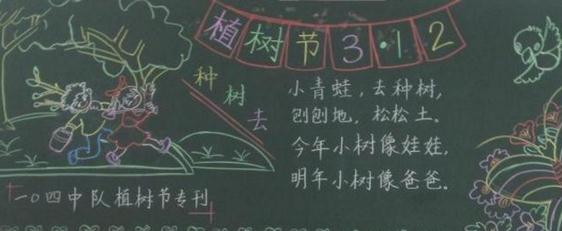 植树节3·12
种树去
小青蛙，去种树，
刨刨地，松松土。
今年小树像娃娃，
明年小树像爸爸。
一0四中队植树节专刊